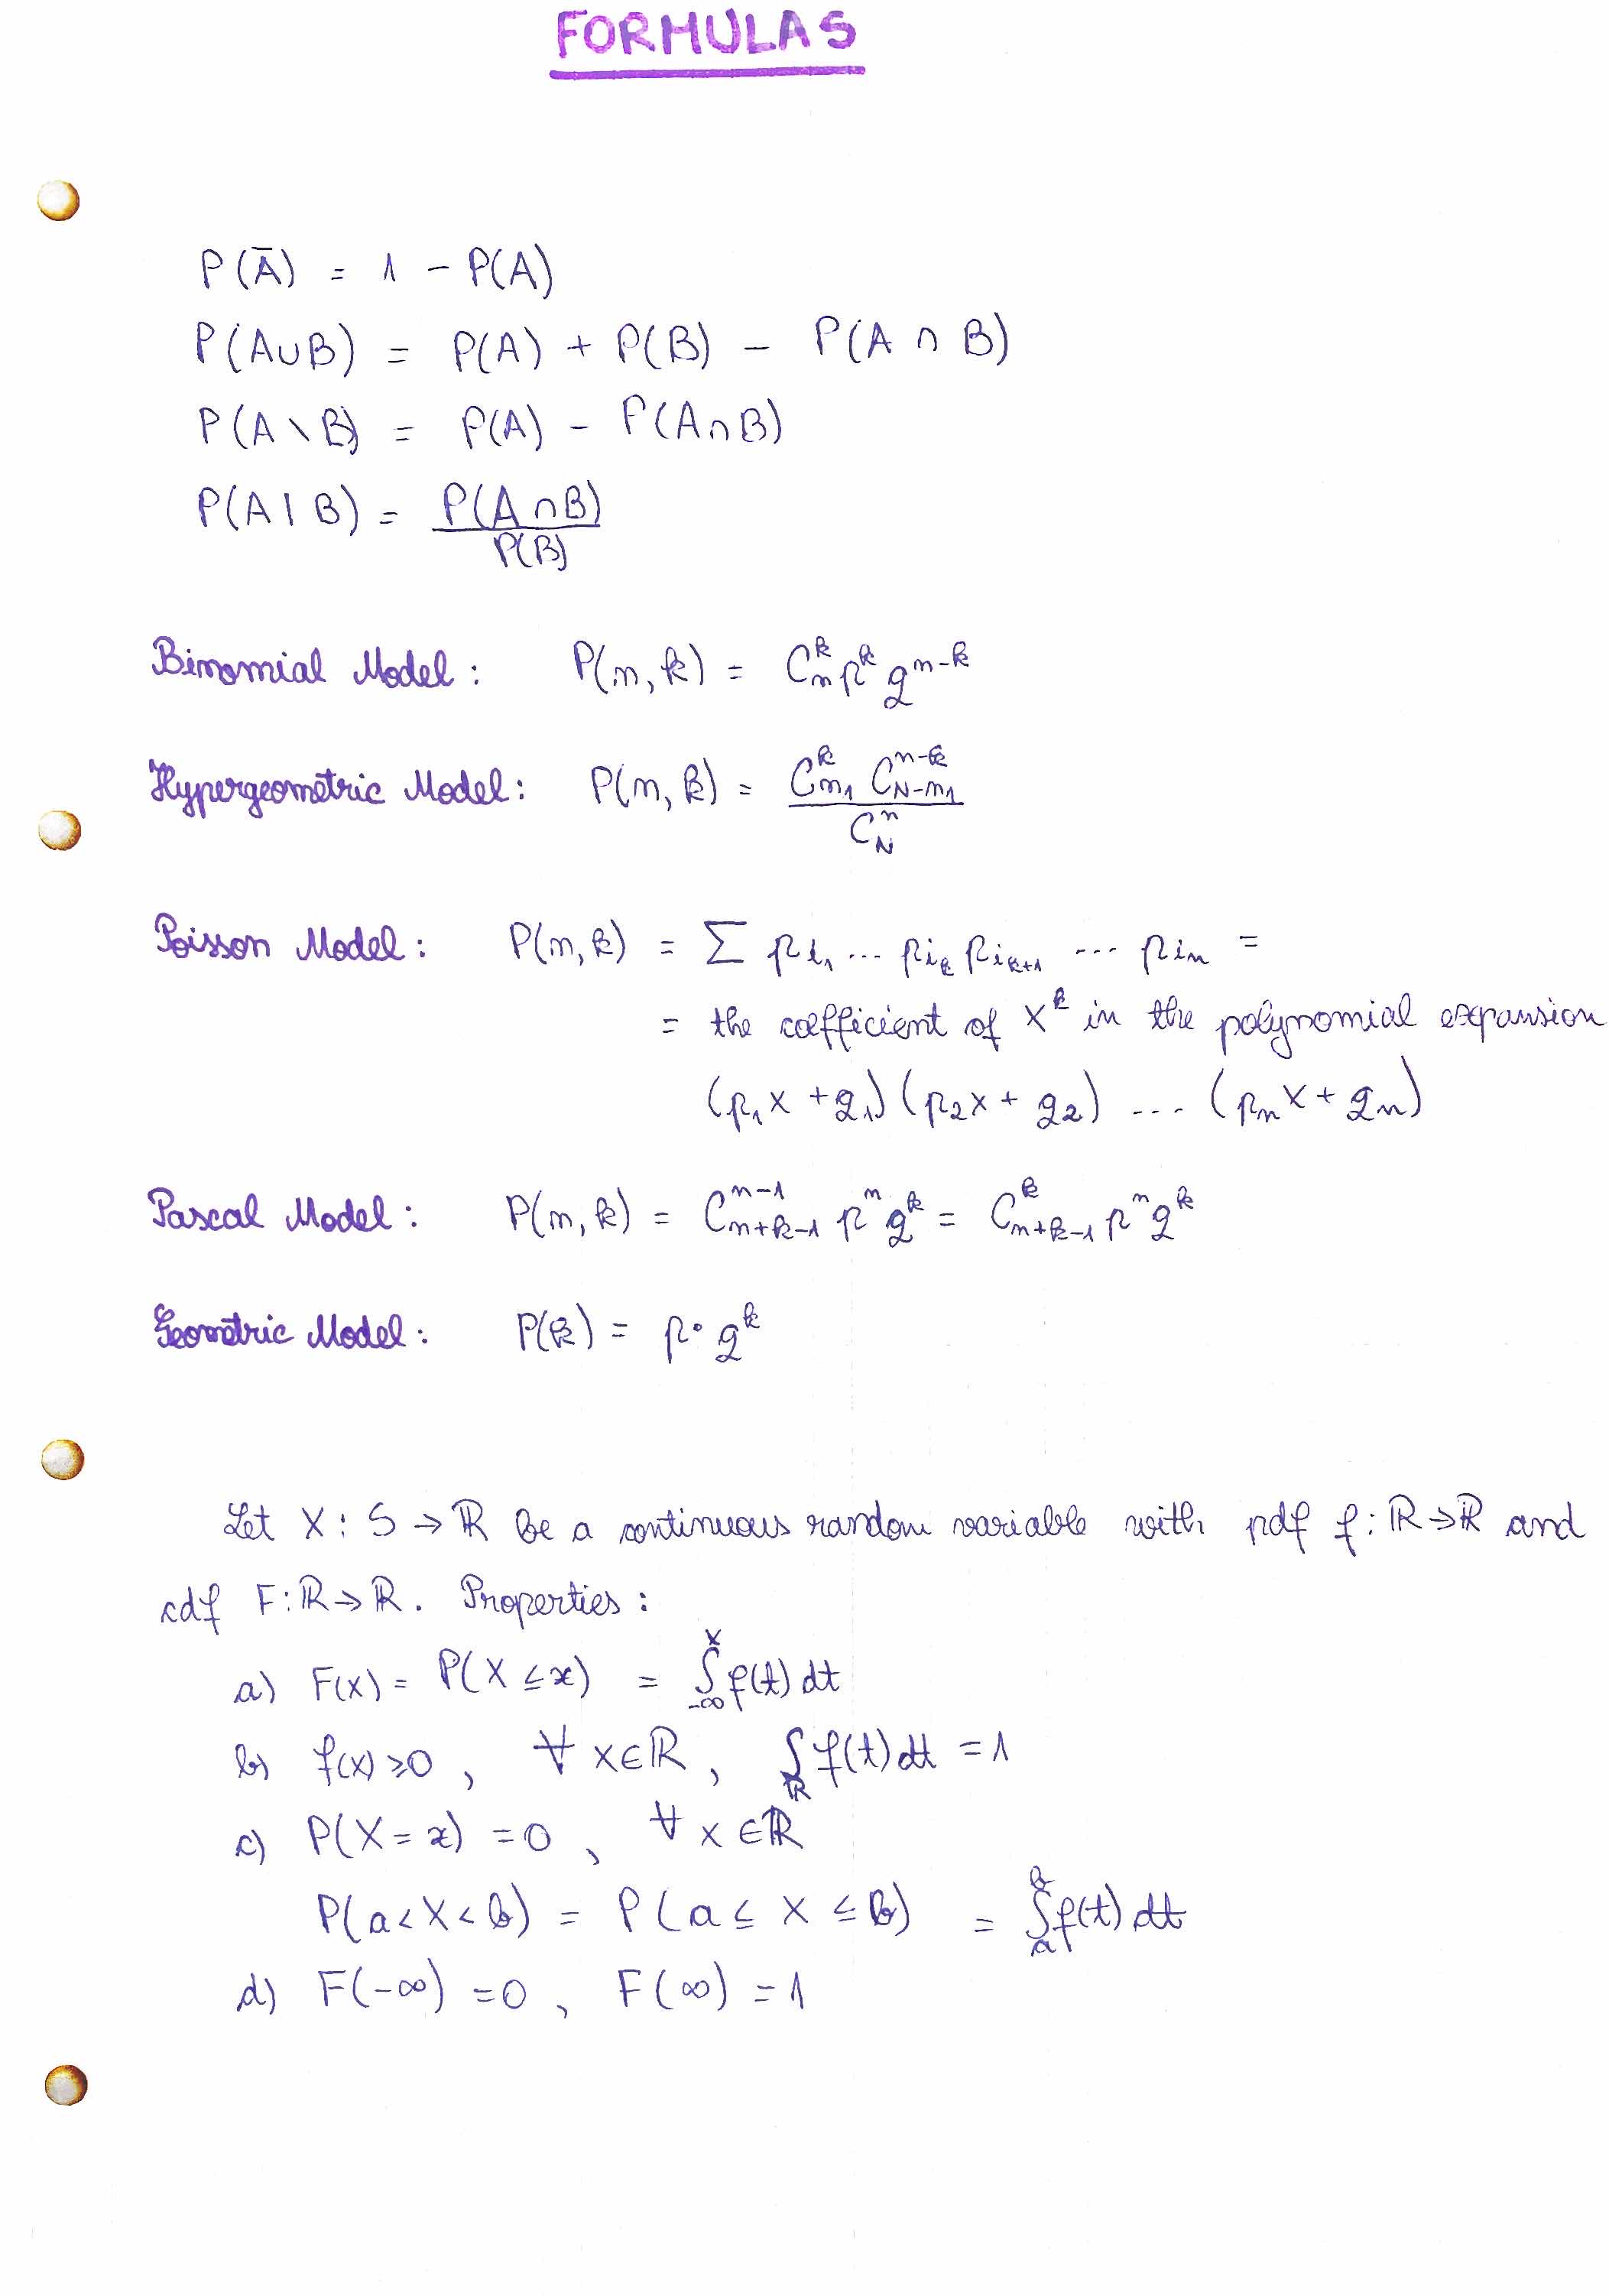 FORMULAS
P(Ā) = 1 - P(A)
P(A∪B) = P(A) + P(B) - P(A ∩ B)
P(A \ B) = P(A) - P(A∩B)
P(A | B) = P(A ∩ B) / P(B)
Binomial Model: P(n, k) = C_n^k p^k q^{n-k}
Hypergeometric Model: P(n, k) = C_{n_1}^k C_{N-n_1}^{n-k} / C_N^n
Poisson Model: P(n, k) = Σ p_{i_1} ... p_{i_k} p_{i_{k+1}} ... p_{i_n} =
= the coefficient of x^k in the polynomial expansion
(p_1 x + q_1)(p_2 x + q_2) ... (p_n x + q_n)
Pascal Model: P(n, k) = C_{n+k-1}^{n-1} p^n q^k = C_{n+k-1}^k p^n q^k
Geometric Model: P(k) = p · q^k
Let X : S → ℝ be a continuous random variable with pdf f : ℝ → ℝ and
cdf F : ℝ → ℝ. Properties :
a) F(x) = P(X ≤ x) = ∫_{-∞}^x f(t) dt
b) f(x) ≥ 0 , ∀ x ∈ ℝ , ∫_ℝ f(t) dt = 1
c) P(X = x) = 0 , ∀ x ∈ ℝ
P(a < X < b) = P(a ≤ X ≤ b) = ∫_a^b f(t) dt
d) F(-∞) = 0 , F(∞) = 1